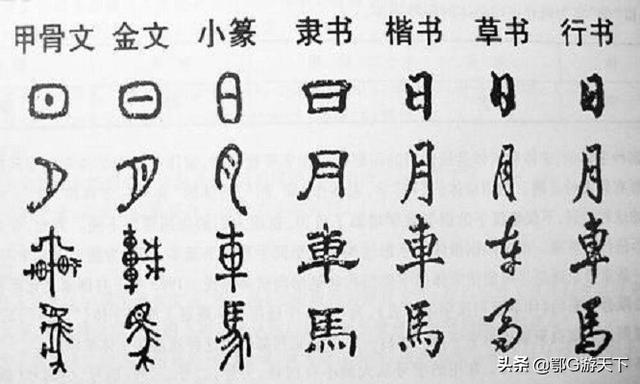 甲骨文 金文 小篆 隶书 楷书 草书 行书
日 日 日 日 日 日 日
月 月 月 月 月 月 月
車 車 車 車 車 車 車
馬 馬 馬 馬 馬 馬 馬
头条 @鄂G游天下